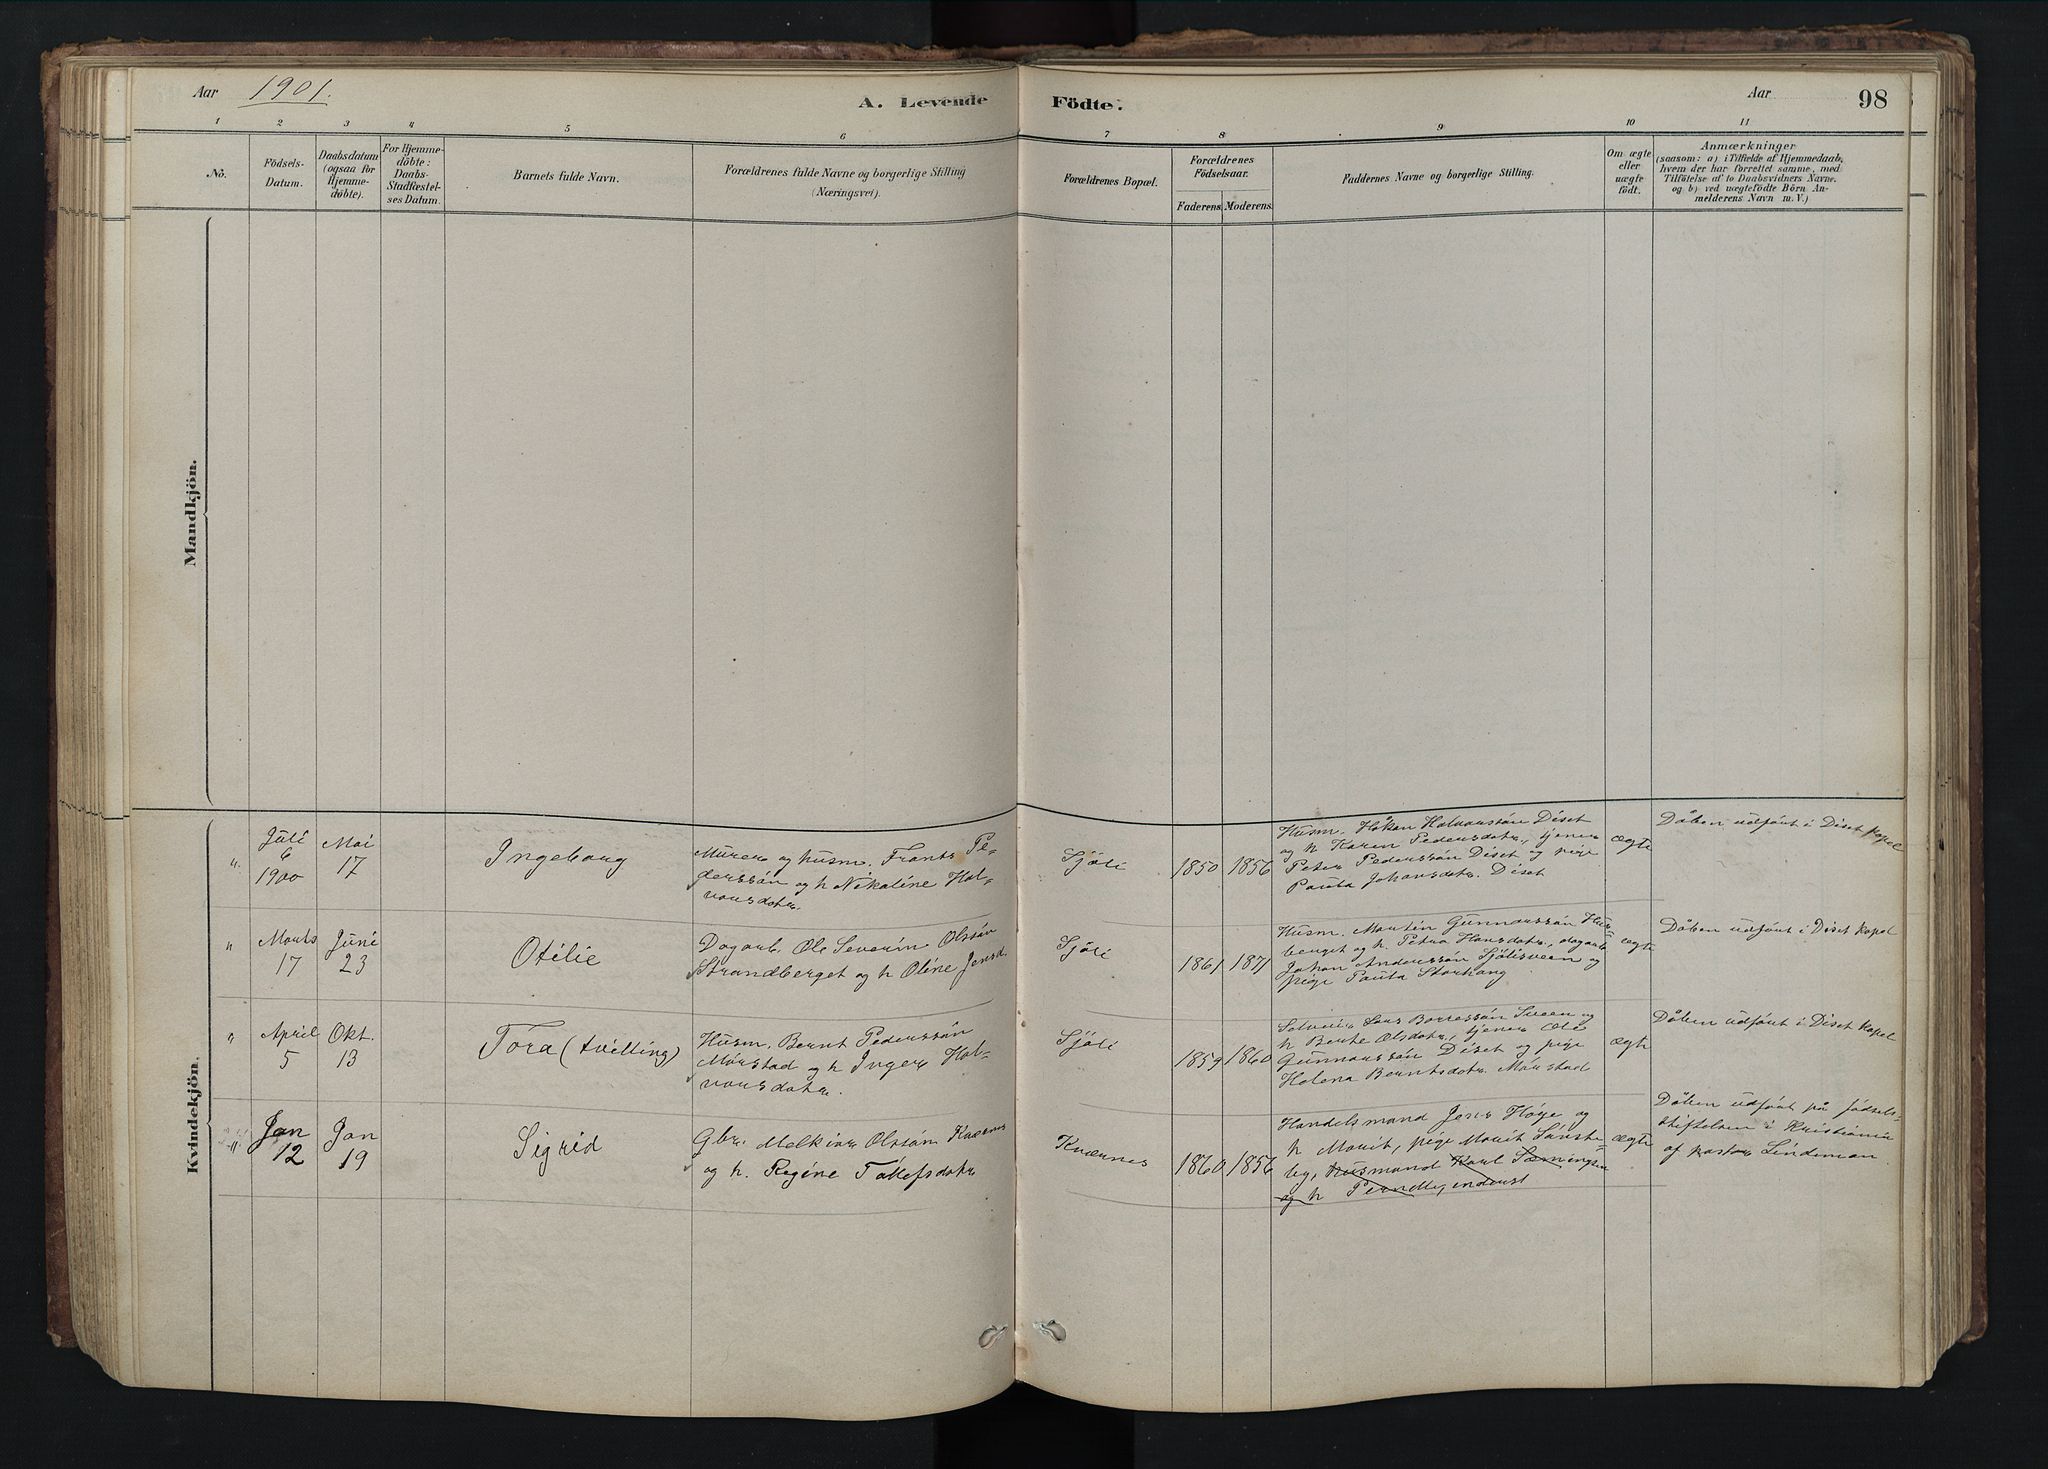 Aar 1901.
A. Levende Födte.
Aar
98
1 2 3 4 5 6 7 8 9 10 11
No.
Födsels-
Datum.
Daabsdatum
(ogsaa for
Hjemme-
döbte).
For Hjemme-
döbte:
Daabs-
Stadfæstel-
ses Datum.
Barnets fulde Navn.
Forældrenes fulde Navne og borgerlige Stilling
(Næringsvei).
Forældrenes Bopæl.
Forældrenes
Födselsaar.
Faderens. Moderens.
Faddernes Navne og borgerlige Stilling.
Om ægte
eller
uægte
födt.
Anmærkninger
(saasom: a) i Tilfælde af Hjemmedaab,
hvem der har forrettet samme, med
Tilföielse af to Daabsvidners Navne.
og b) ved uægtefödte Börn An-
melderens Navn m. V.)
Mandkjön.
Kvindekjön.
"
Juli
6
1900
Mai
17
Ingeborg
Murer og husm. Frants Pe-
derssön og h Nikoline Hal-
vorsdotr.
Sjöli
1850
1856
Husm. Håkon Halvorssön Diset
og h Karen Pedersdotr, tjener
Peter Pederssön Diset og pige
Paula Johansdotr. Diset
ægte
Dåben udfört i Diset kapel
"
Marts
17
Juni
23
Otilie
Dagarb. Ole Severin Olssön
Strandberget og h Oline Jensd.
Sjöli
1861
1871
Husm. Martin Gunnarssön Hus-
berget og h Petra Hansdotr., dagarb
Johan Anderssön Sjölisveen og
pige Paula Storhaug
ægte
Dåben udfört i Diset kapel
"
April
5
Okt.
13
Tora (tvilling)
Husm. Bernt Pederssön
Mörstad og h Inger Hal-
vorsdotr.
Sjöli
1859
1860
Selveier Lars Borressön Sveen og
h Berte Olsdotr, tjener Ole
Gunnarssön Diset og pige
Helena Berntsdotr. Mörstad
ægte
Dåben udfört i Diset kapel
"
Jan
12
Jan
19
Sigrid
Gbr. Melkior Olssön Kværnes
og h. Regine Tollefsdotr
Kværnes
1860
1856
Handelsmand Jens Höye og
h Marit, pige Marit Sörste-
by, husmand Karl
og h
ægte
Dåben udfört på födsels-
stiftelsen i Kristiania
af pastor Lindeman.